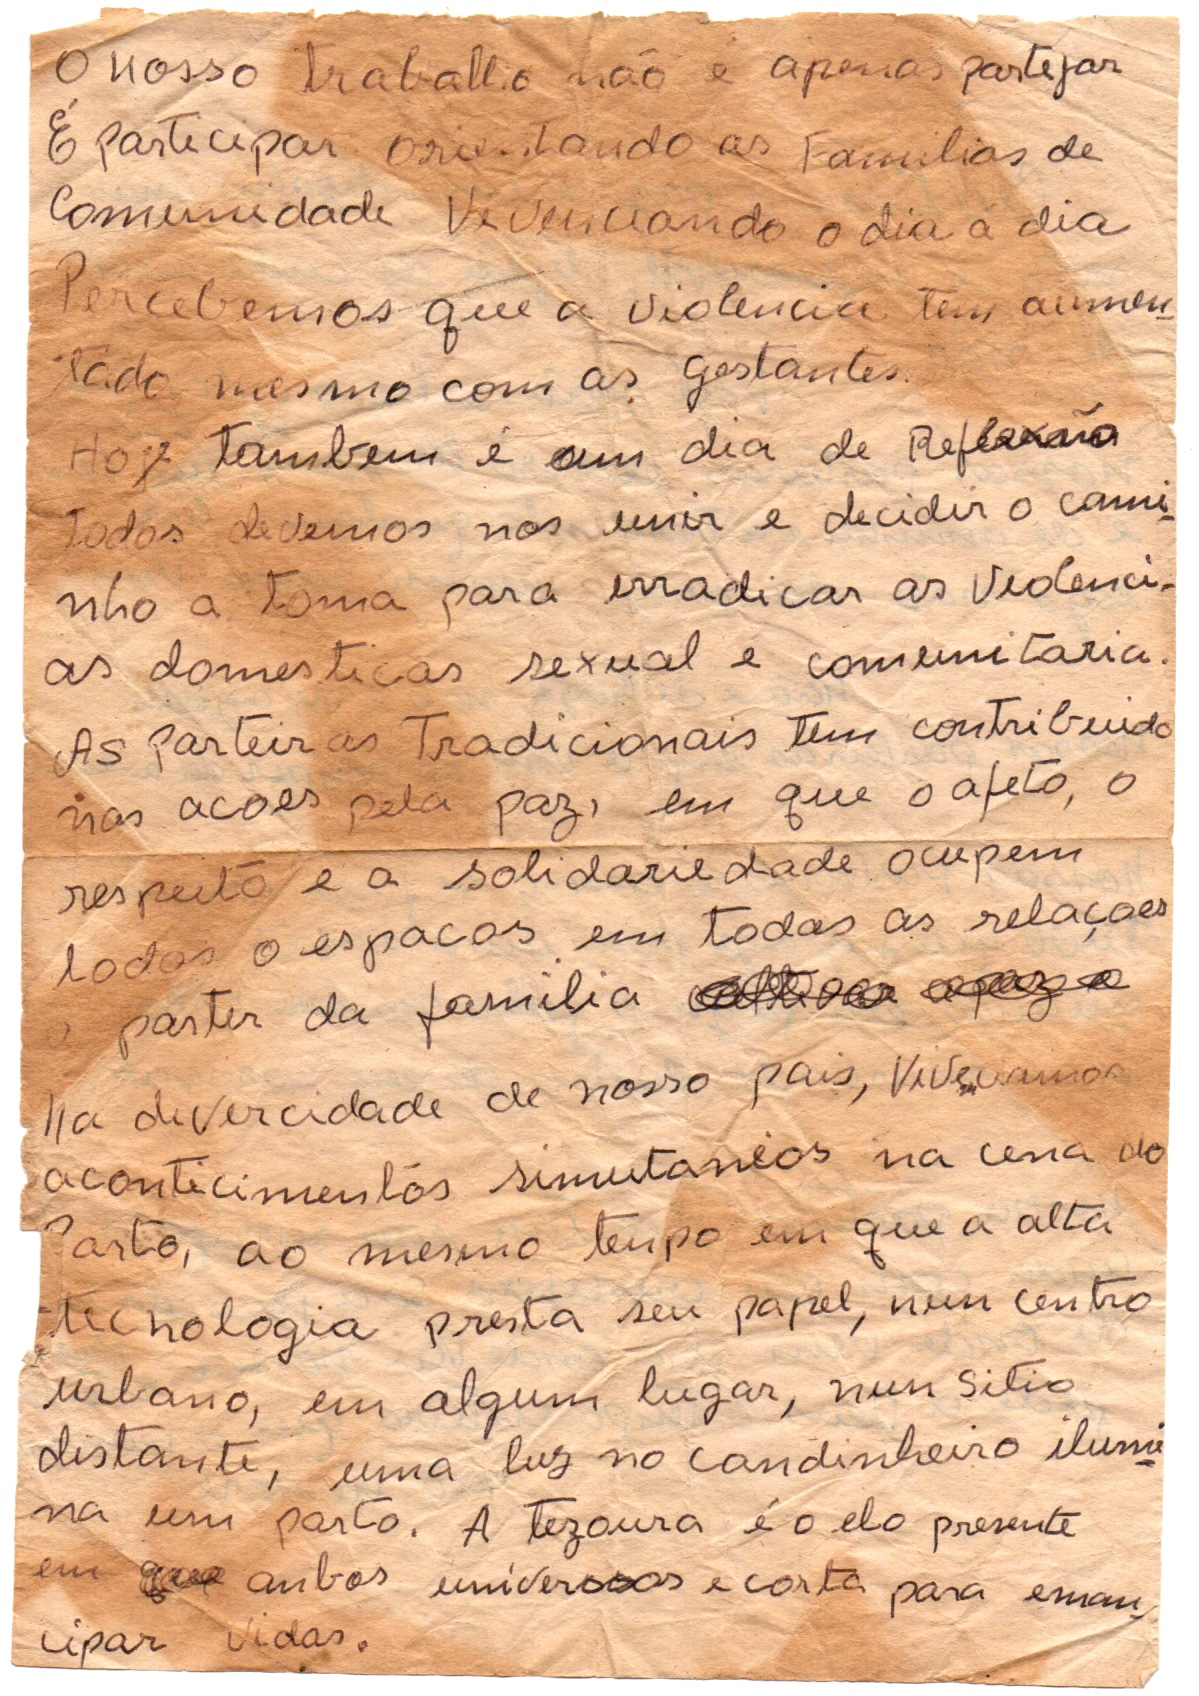 O nosso trabalho não é apenas partejar
É participar orientando as Familias de
Comunidade Vivenciando o dia á dia
Percebemos que a violencia tem aumen-
tado mesmo com as gestantes.
Hoje tambem é um dia de Reflexão
todos devemos nos unir e decidir o cami-
nho a toma para irradicar as Violenci-
as domesticas sexual e comunitaria.
As Parteiras Tradicionais tem contribuido
nas acoes pela paz, em que o afeto, o
respeito e a solidariedade ocupem
todos o espacos em todas as relaçoes
a parter da familia
Na divercidade de nosso pais,
aconticimentos simutaneos na cena do
Parto, ao mesmo tempo em que a alta
tecnologia presta seu papel, num centro
urbano, em algum lugar, num sitio
distante, uma luz no candinheiro ilumi-
na um parto. A tezoura é o elo presente
em anbos universos e corta para eman-
cipar vidas.